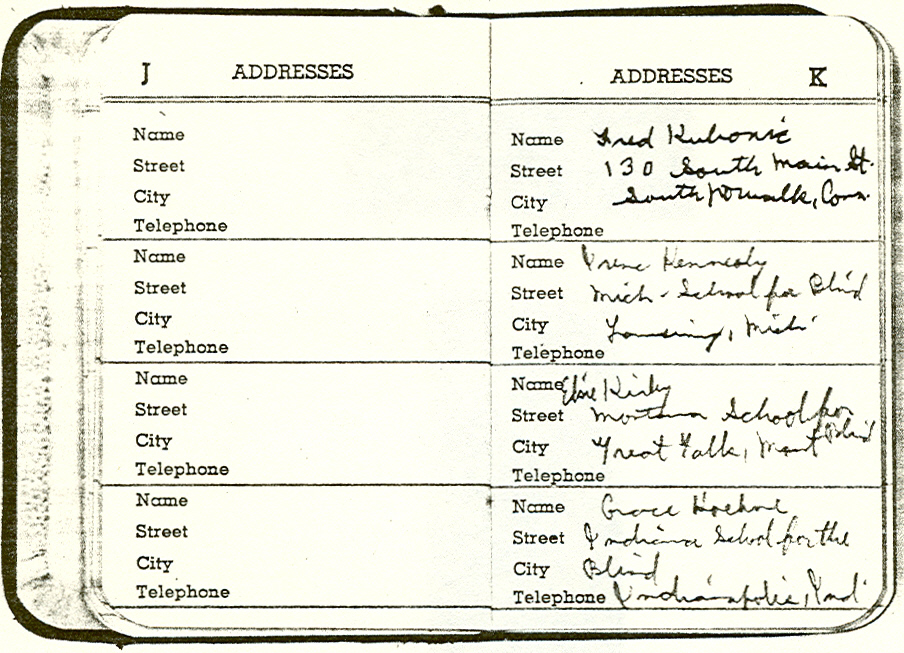 J ADDRESSES
Name
Street
City
Telephone
Name
Street
City
Telephone
Name
Street
City
Telephone
Name
Street
City
Telephone
ADDRESSES K
Name Fred Kubonic
Street 130 South Main St.
City South Norwalk, Conn.
Telephone
Name Irene Kennedy
Street Mich. School for Blind
City Lansing, Mich.
Telephone
Name Elsie Kirby
Street Montana School for
Blind
City Great Falls, Mont
Telephone
Name Grace
Street Indiana School for the
City Blind
Telephone Indianapolis, Ind.